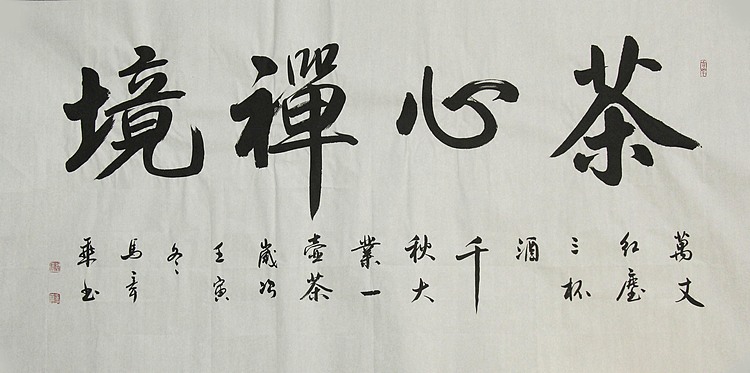 茶心禪境
萬丈
紅塵
三杯
酒
千
秋大
業一
壺茶
歲次
壬寅
冬
馬
華书